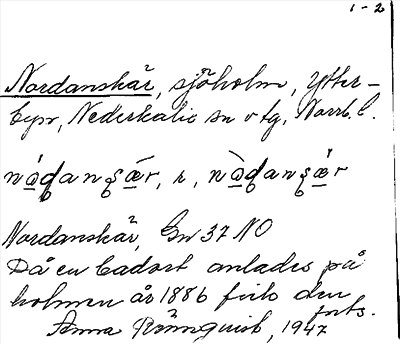 1-2
Nordanskär, sjöholm, Ytter-
byn, Nederkalix sn o tg, Norrb. l.
Nordanskär, Gn 37 NO
Då en badort anlades på
holmen år 1886 fick den
forts.
Anna Rönnquist, 1947